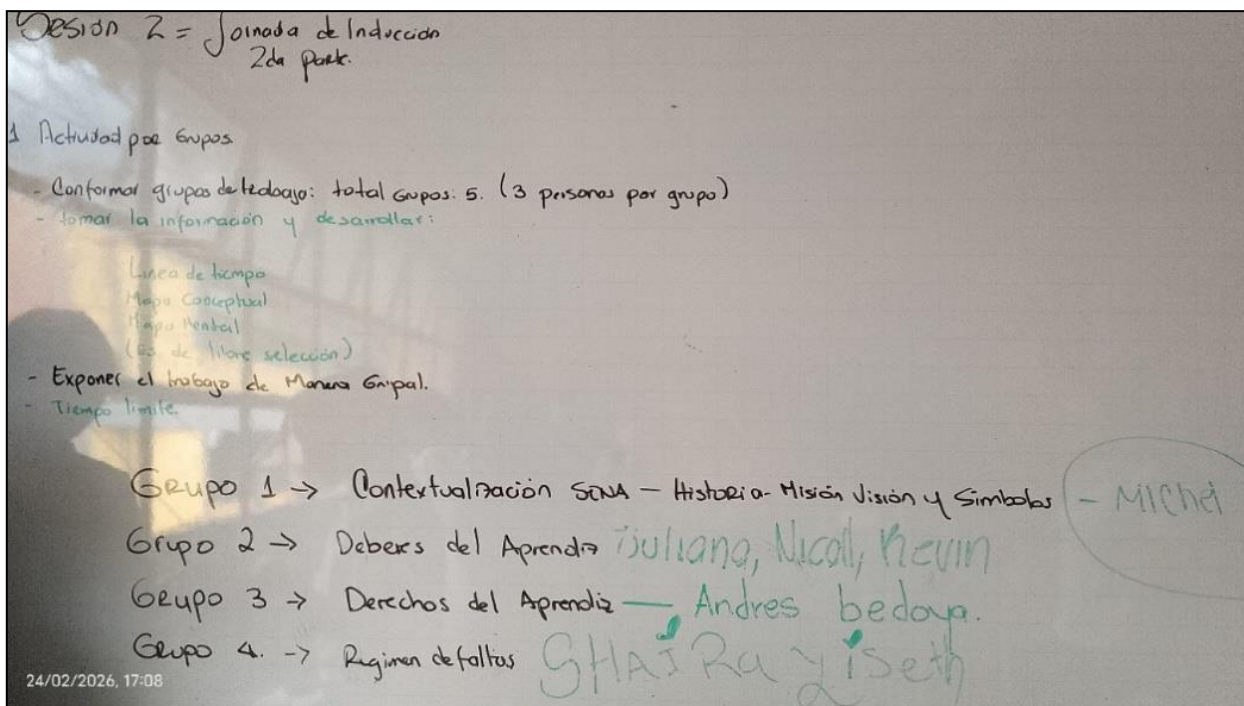 Sesión 2 = Jornada de Inducción
2da parte.
1 Actividad por Grupos
- Conformar grupos de trabajo: total Grupos: 5. (3 personas por grupo)
- tomar la información y desarrollar:
Linea de tiempo
Mapa Conceptual
Mapa Mental
(Es de libre selección)
- Exponer el trabajo de Manera Grupal.
- Tiempo limite.
Grupo 1 → Contextualización SENA - Historia - Misión Visión y Simbolos - Michel
Grupo 2 → Deberes del Aprendiz Juliana, Nicoll, Kevin
Grupo 3 → Derechos del Aprendiz — Andres bedoya.
Grupo 4. → Regimen de faltas SHAJRa YiSeth
24/02/2026, 17:08